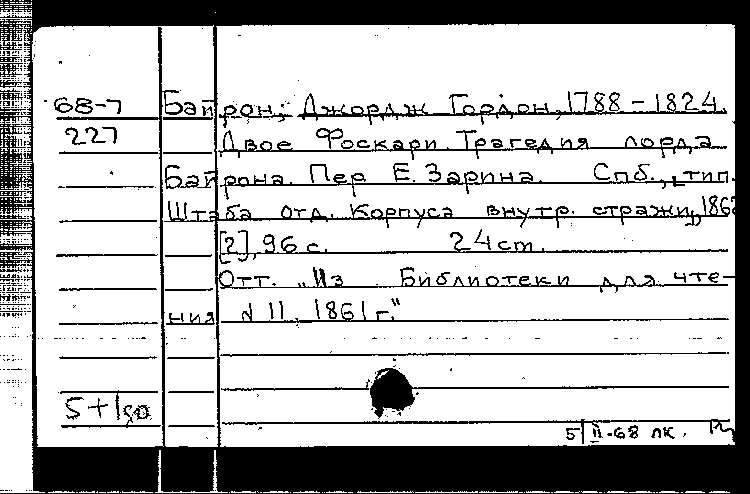 68-7 Байрон, Джордж Гордон, 1788-1824.
227 Двое Фоскари. Трагедия лорда
Байрона. Пер Е. Зарина. Спб., тип.
Штаба отд. Корпуса внутр. стражи, 186
[2], 96 с. 24 cm.
Отт. "Из Библиотеки для чте-
ния N 11, 1861 г."
5/II-68 лк.